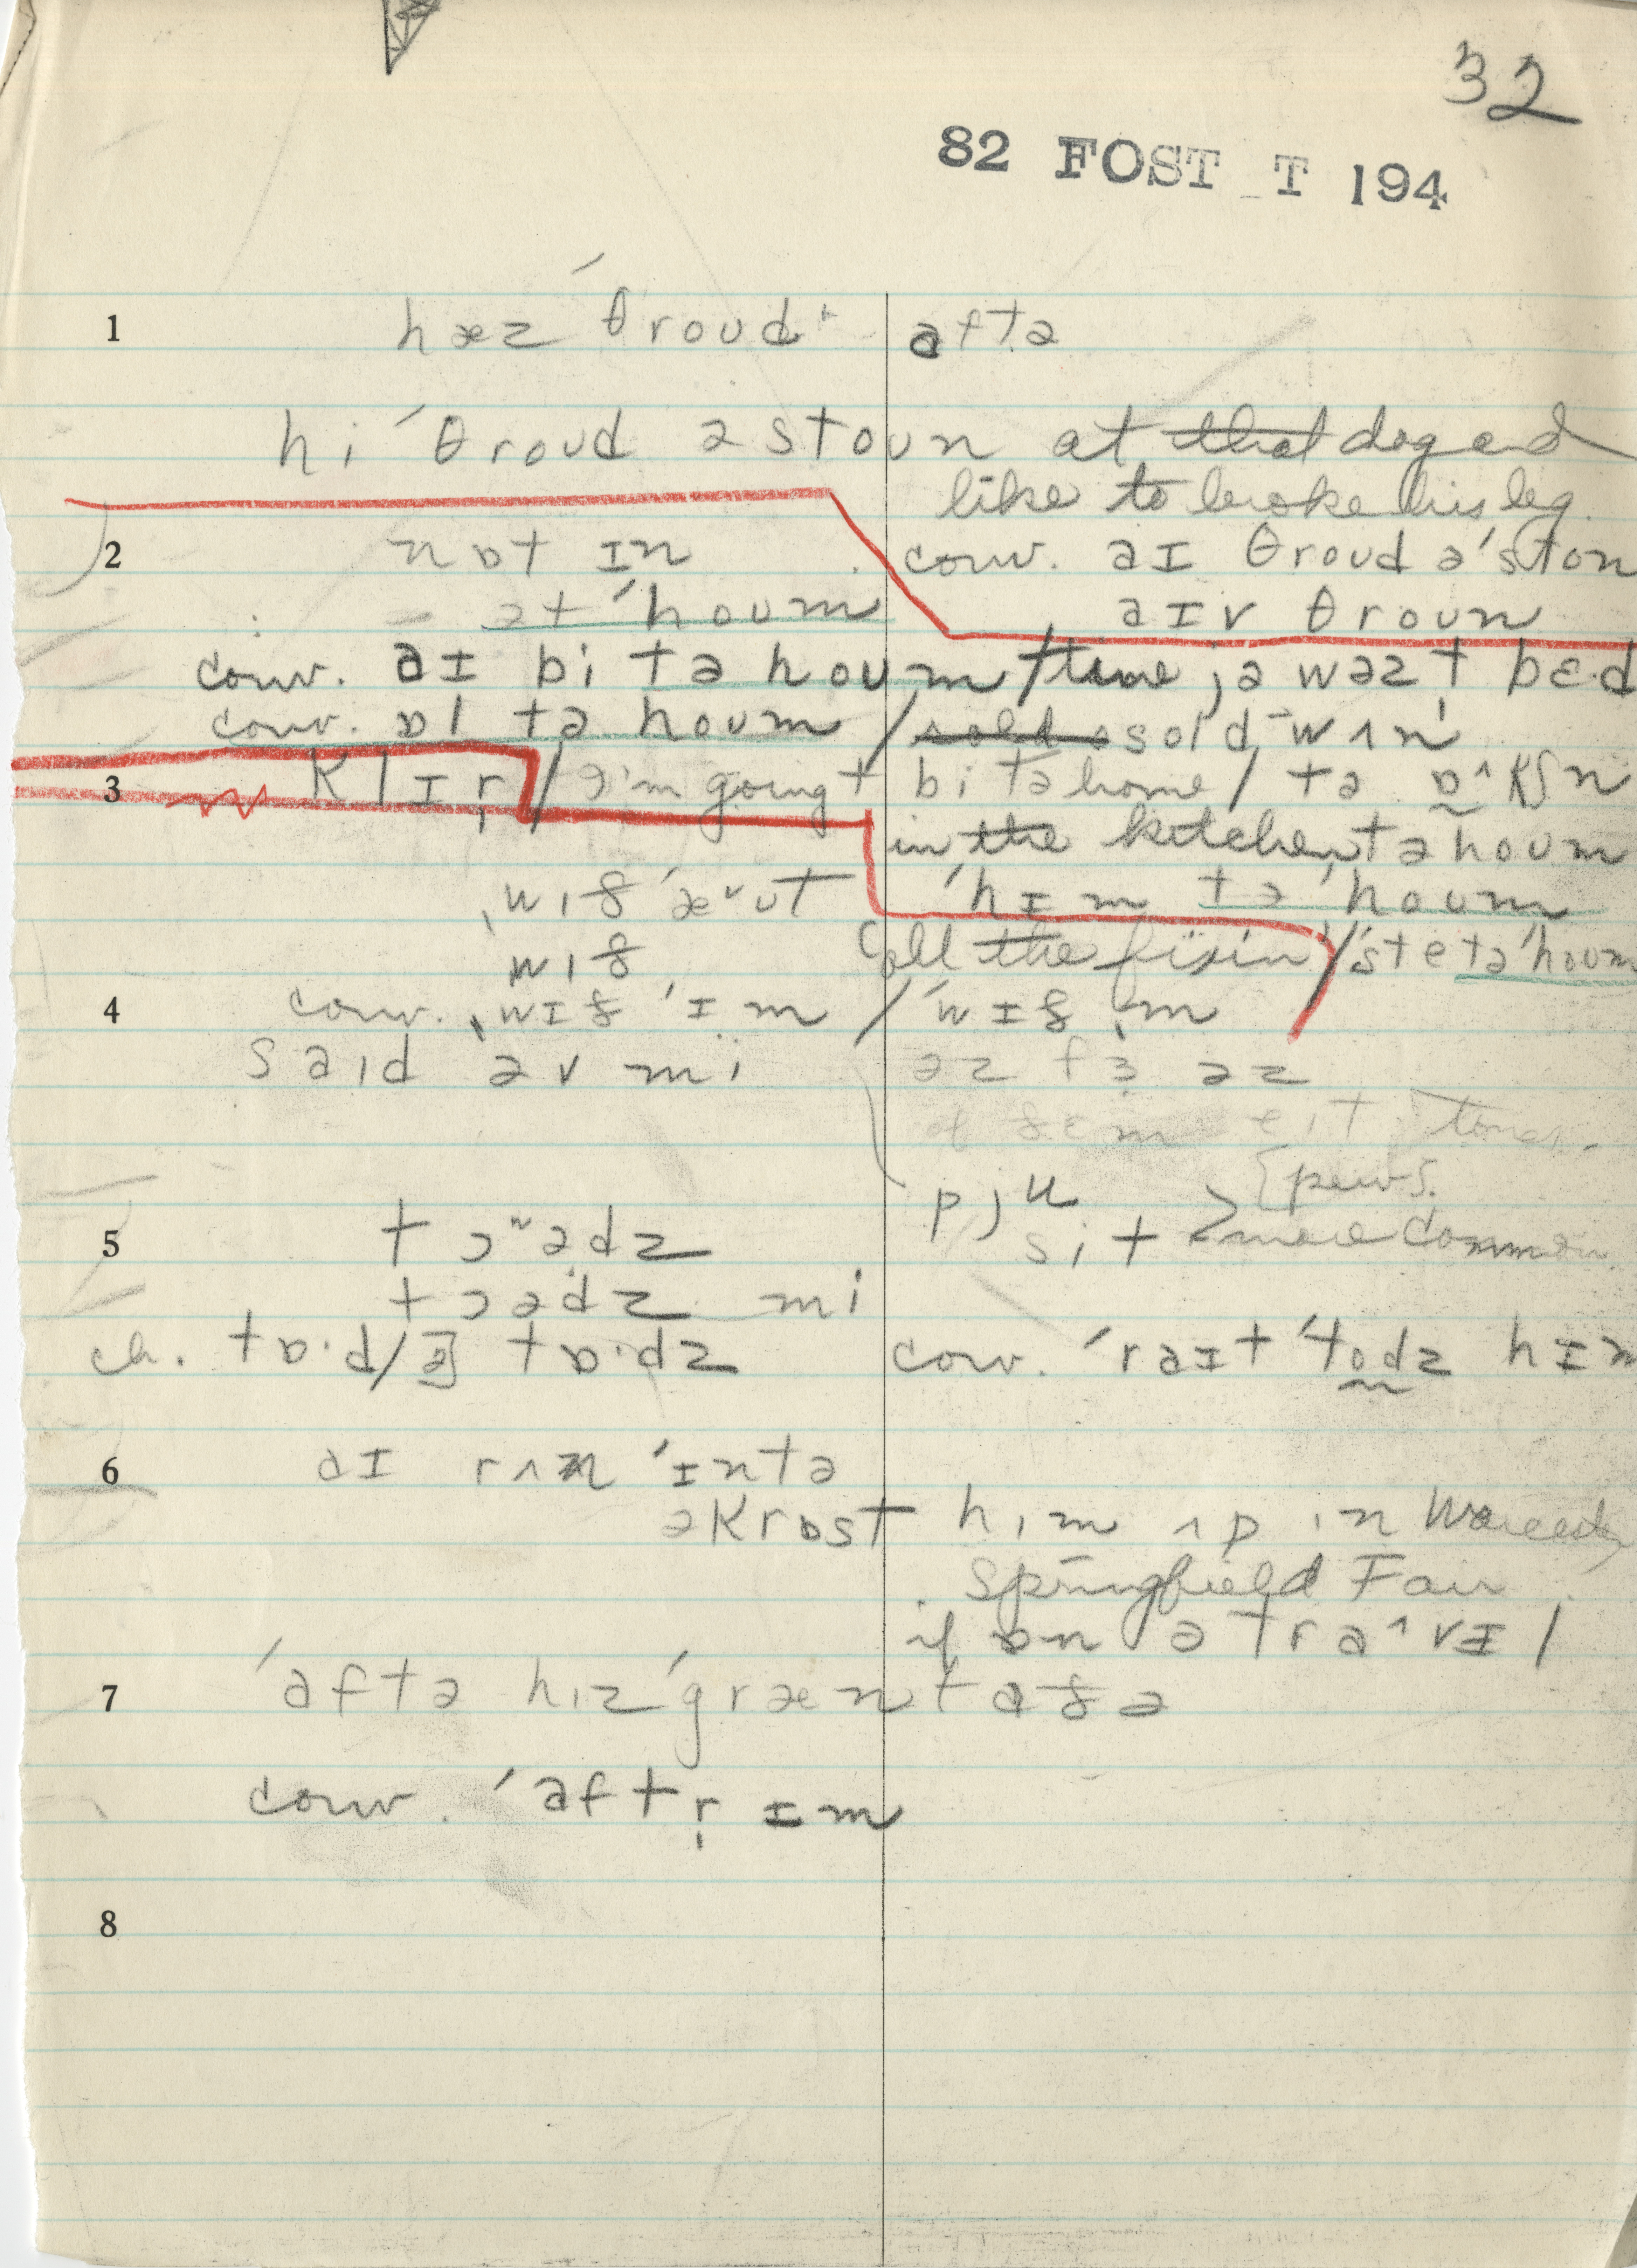 32
82 FOST T 194
1 hæz ˈθroʊd aftə
hi ˈθroʊd ə stoʊn at that dog and
like to broke his leg
2 nɒt ɪn conv. aɪ θroʊd əˈston
ət ˈhoʊm aɪv θroʊn
conv. aɪ bi tə hoʊm / time jə wəzt bɛ·d
conv. ɒl tə hoʊm / sold ə sold wʌn
3 klɪr̩ / I'm going t bi tə home / tə ɒ^kʃn
in the kitchen tə hoʊm
ˌwɪð ˈæᵛʊt ˈhɪm tə ˈhoʊm
wɪð all the fixin / ste tə ˈhoʊm
4 conv. ˌwɪð ˈɪm / ˈwɪð ɪm
said əv mi əz fɜ əz
of ðɛm
pjʊ {pews}
5 tɔʷədz sit > more common
tɔədz mi
ch. tɒ·d/z] tɒ·dz conv. ˈraɪt ˈtɒdz hɪm
6 aɪ rʌn ˈɪntə
əkrɒst hɪm ʌp ɪn Worcester
Springfield Fair
if ɒn ə tra^vɪl
7 ˈaftə hɪz ˈgræntɑðə
conv. ˈaftr̩ ɪm
8